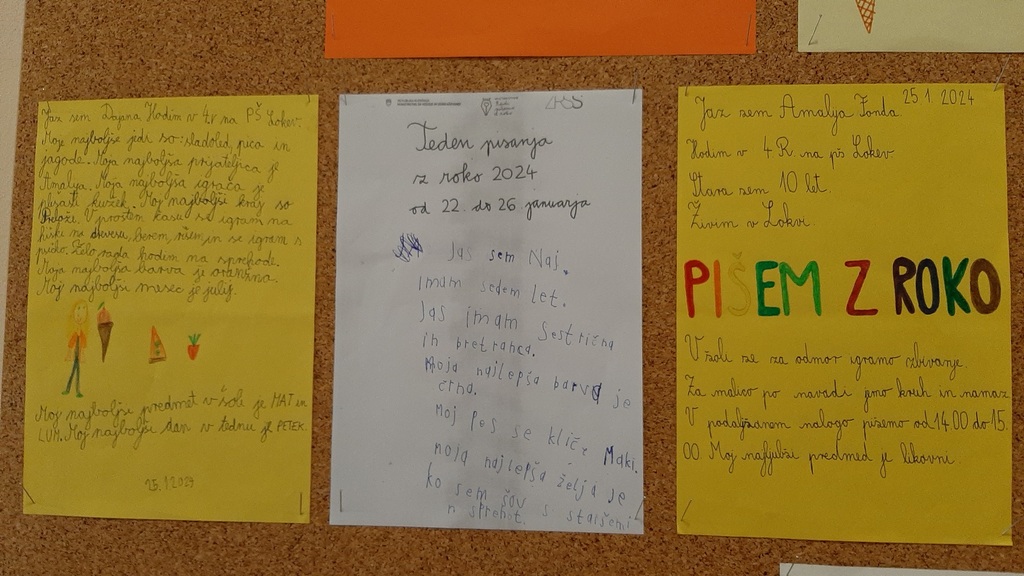 Jaz sem Dajana Hodim v 4r na PŠ Lokev.
Moje najboljše jedi so: sladoled, pica in
jagode. Moja najboljša prijateljica je
Amalya. Moja najboljša igrača je
pisati kužek. Moj najboljši kraj so
Prelože. V prostem kasu se igram na
hiški na drevesu, berem, rišem in se igram s
psičko. Zelo rada hodim na sprehode.
Moja najboljša barva je oranžna.
Moj najboljši mesec je julij.
Moj najboljši predmet v šoli je MAT in
LUM. Moj najboljši dan v tednu je PETEK.
25.1.2024
ZRSŠ
Teden pisanja
z roko 2024
od 22. do 26 januarja
Jas sem Naj.
imam sedem let.
Jas imam sestrična
in bretranca.
Moja najlepša barva je
črna.
Moj pes se kliče Maki.
moja najlepša želja je
ko sem šou s staršemi
n sprehot.
25 1 2024
Jaz sem Amalya Fonda
Hodim v 4.R na pš Lokev
Stara sem 10 let.
Živim v Lokvi.
PIŠEM Z ROKO
V šoli se za odmor igramo zbivanje.
Za malico po navadi jemo kruh in namaz
V podaljšanem nalogo pišemo od 14 00 do 15.
00. Moj najljubši predmed je likovni.